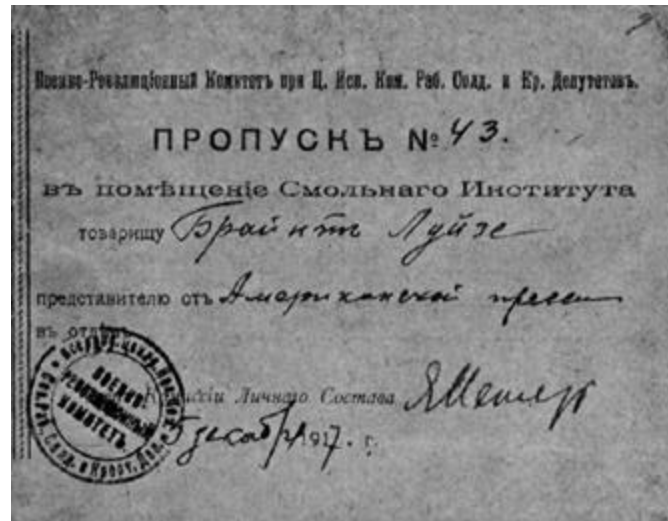 Военно-Революцiонный Комитетъ при Ц. Исп. Ком. Раб. Солд. и Кр. Депутатовъ.
ПРОПУСКЪ № 43.
въ помѣщенiе Смольнаго Института
товарищу Брайантъ Луизе
представителю отъ Американской прессы
въ отдѣлъ
Личнаго Состава
ВОЕННО-
РЕВОЛЮЦIОННЫЙ
КОМИТЕТЪ.
5 декабря 1917. г.